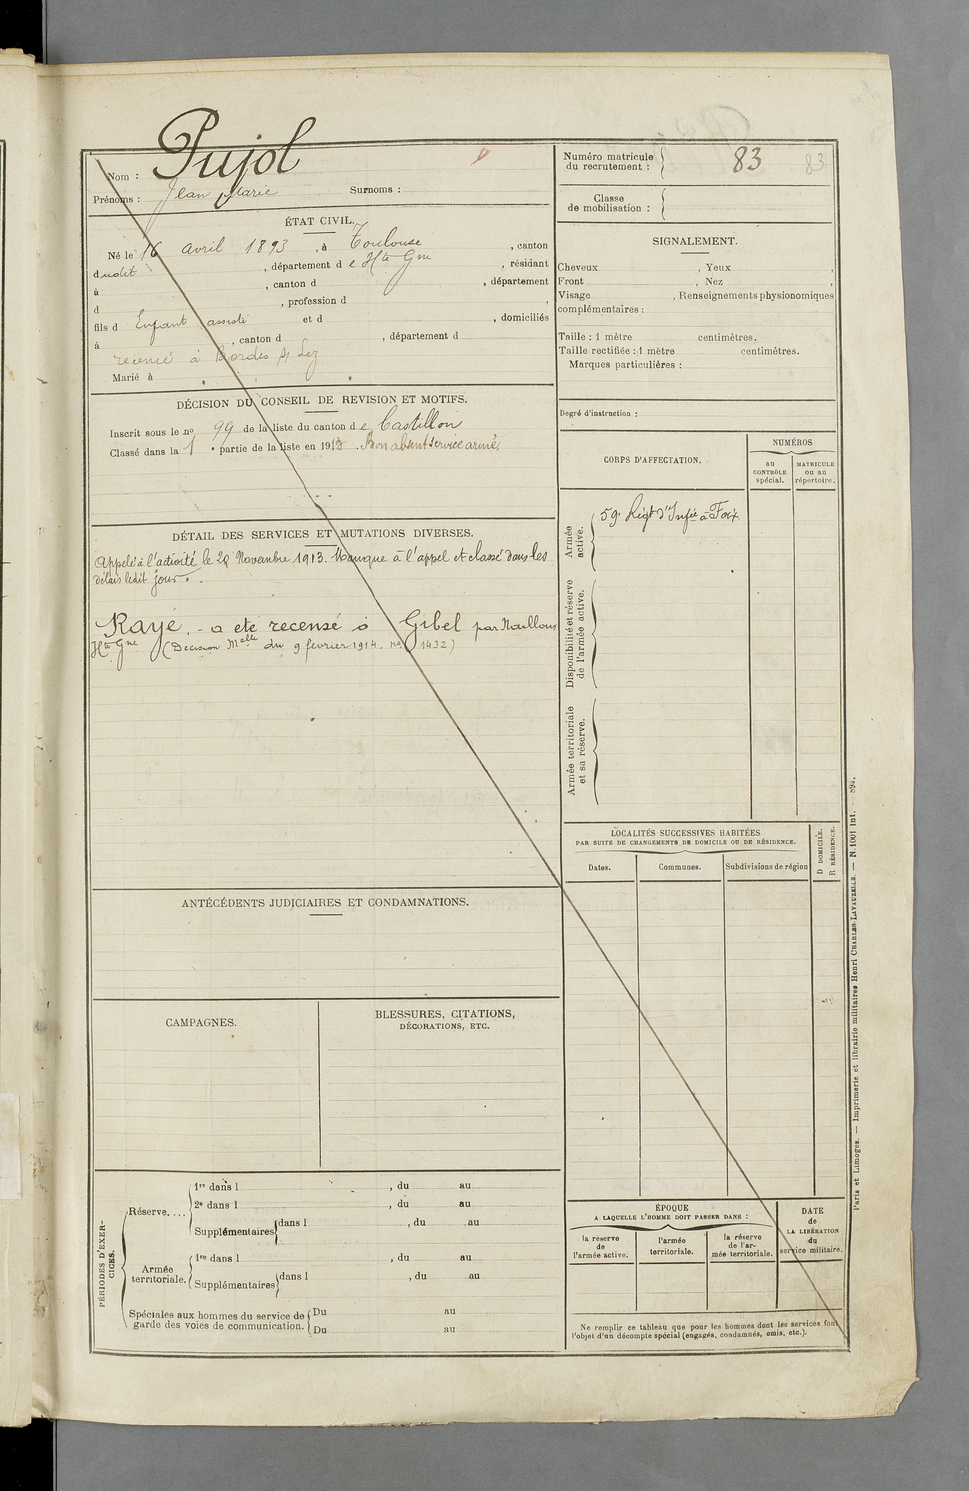 Pujol
Nom :
Prénoms : Jean Marie Surnoms :
Numéro matricule du recrutement : 83 83
Classe de mobilisation :
ÉTAT CIVIL.
Né le 16 avril 1893, à Toulouse, canton
dudit, département de Hte Gne, résidant
à , canton d , département
d , profession d ,
fils d Enfant assisté et d , domiciliés
à , canton d , département d
recensé à Bordes s/ Lez
Marié à
DÉCISION DU CONSEIL DE REVISION ET MOTIFS.
Inscrit sous le no 99 de la liste du canton de Castillon
Classé dans la 1 e partie de la liste en 1913 . Bon absent service armé.
DÉTAIL DES SERVICES ET MUTATIONS DIVERSES.
Appelé à l'activité le 28 Novembre 1913. Manque à l'appel et classé dans les
délais ledit jour.
Rayé. - a été recensé à Gibel par Nailloux
Hte Gne (Décision Melle du 9 février 1914 - no 1432)
ANTÉCÉDENTS JUDICIAIRES ET CONDAMNATIONS.
CAMPAGNES.
BLESSURES, CITATIONS,
DÉCORATIONS, ETC.
PÉRIODES D'EXERCICES.
Réserve....
1re dans l , du au
2e dans l , du au
Supplémentaires dans l , du au
Armée territoriale.
1re dans l , du au
Supplémentaires dans l , du au
Spéciales aux hommes du service de
garde des voies de communication.
Du au
Du au
SIGNALEMENT.
Cheveux , Yeux ,
Front , Nez ,
Visage , Renseignements physionomiques
complémentaires :
Taille : 1 mètre centimètres.
Taille rectifiée : 1 mètre centimètres.
Marques particulières :
Degré d'instruction :
CORPS D'AFFECTATION.
NUMÉROS
au CONTRÔLE spécial.
MATRICULE ou au répertoire.
Armée active.
59e Régt d'Infie à Foix
Disponibilité et réserve de l'armée active.
Armée territoriale et sa réserve.
LOCALITÉS SUCCESSIVES HABITÉES
PAR SUITE DE CHANGEMENTS DE DOMICILE OU DE RÉSIDENCE.
D DOMICILE.
R RÉSIDENCE.
Dates.
Communes.
Subdivisions de région
ÉPOQUE
A LAQUELLE L'HOMME DOIT PASSER DANS :
la réserve de l'armée active.
l'armée territoriale.
la réserve de l'armée territoriale.
DATE de LA LIBÉRATION du service militaire.
Ne remplir ce tableau que pour les hommes dont les services font
l'objet d'un décompte spécial (engagés, condamnés, omis, etc.).
Paris et Limoges. — Imprimerie et librairie militaires Henri CHARLES-LAVAUZELLE. — N. 1001 Int. — 894.